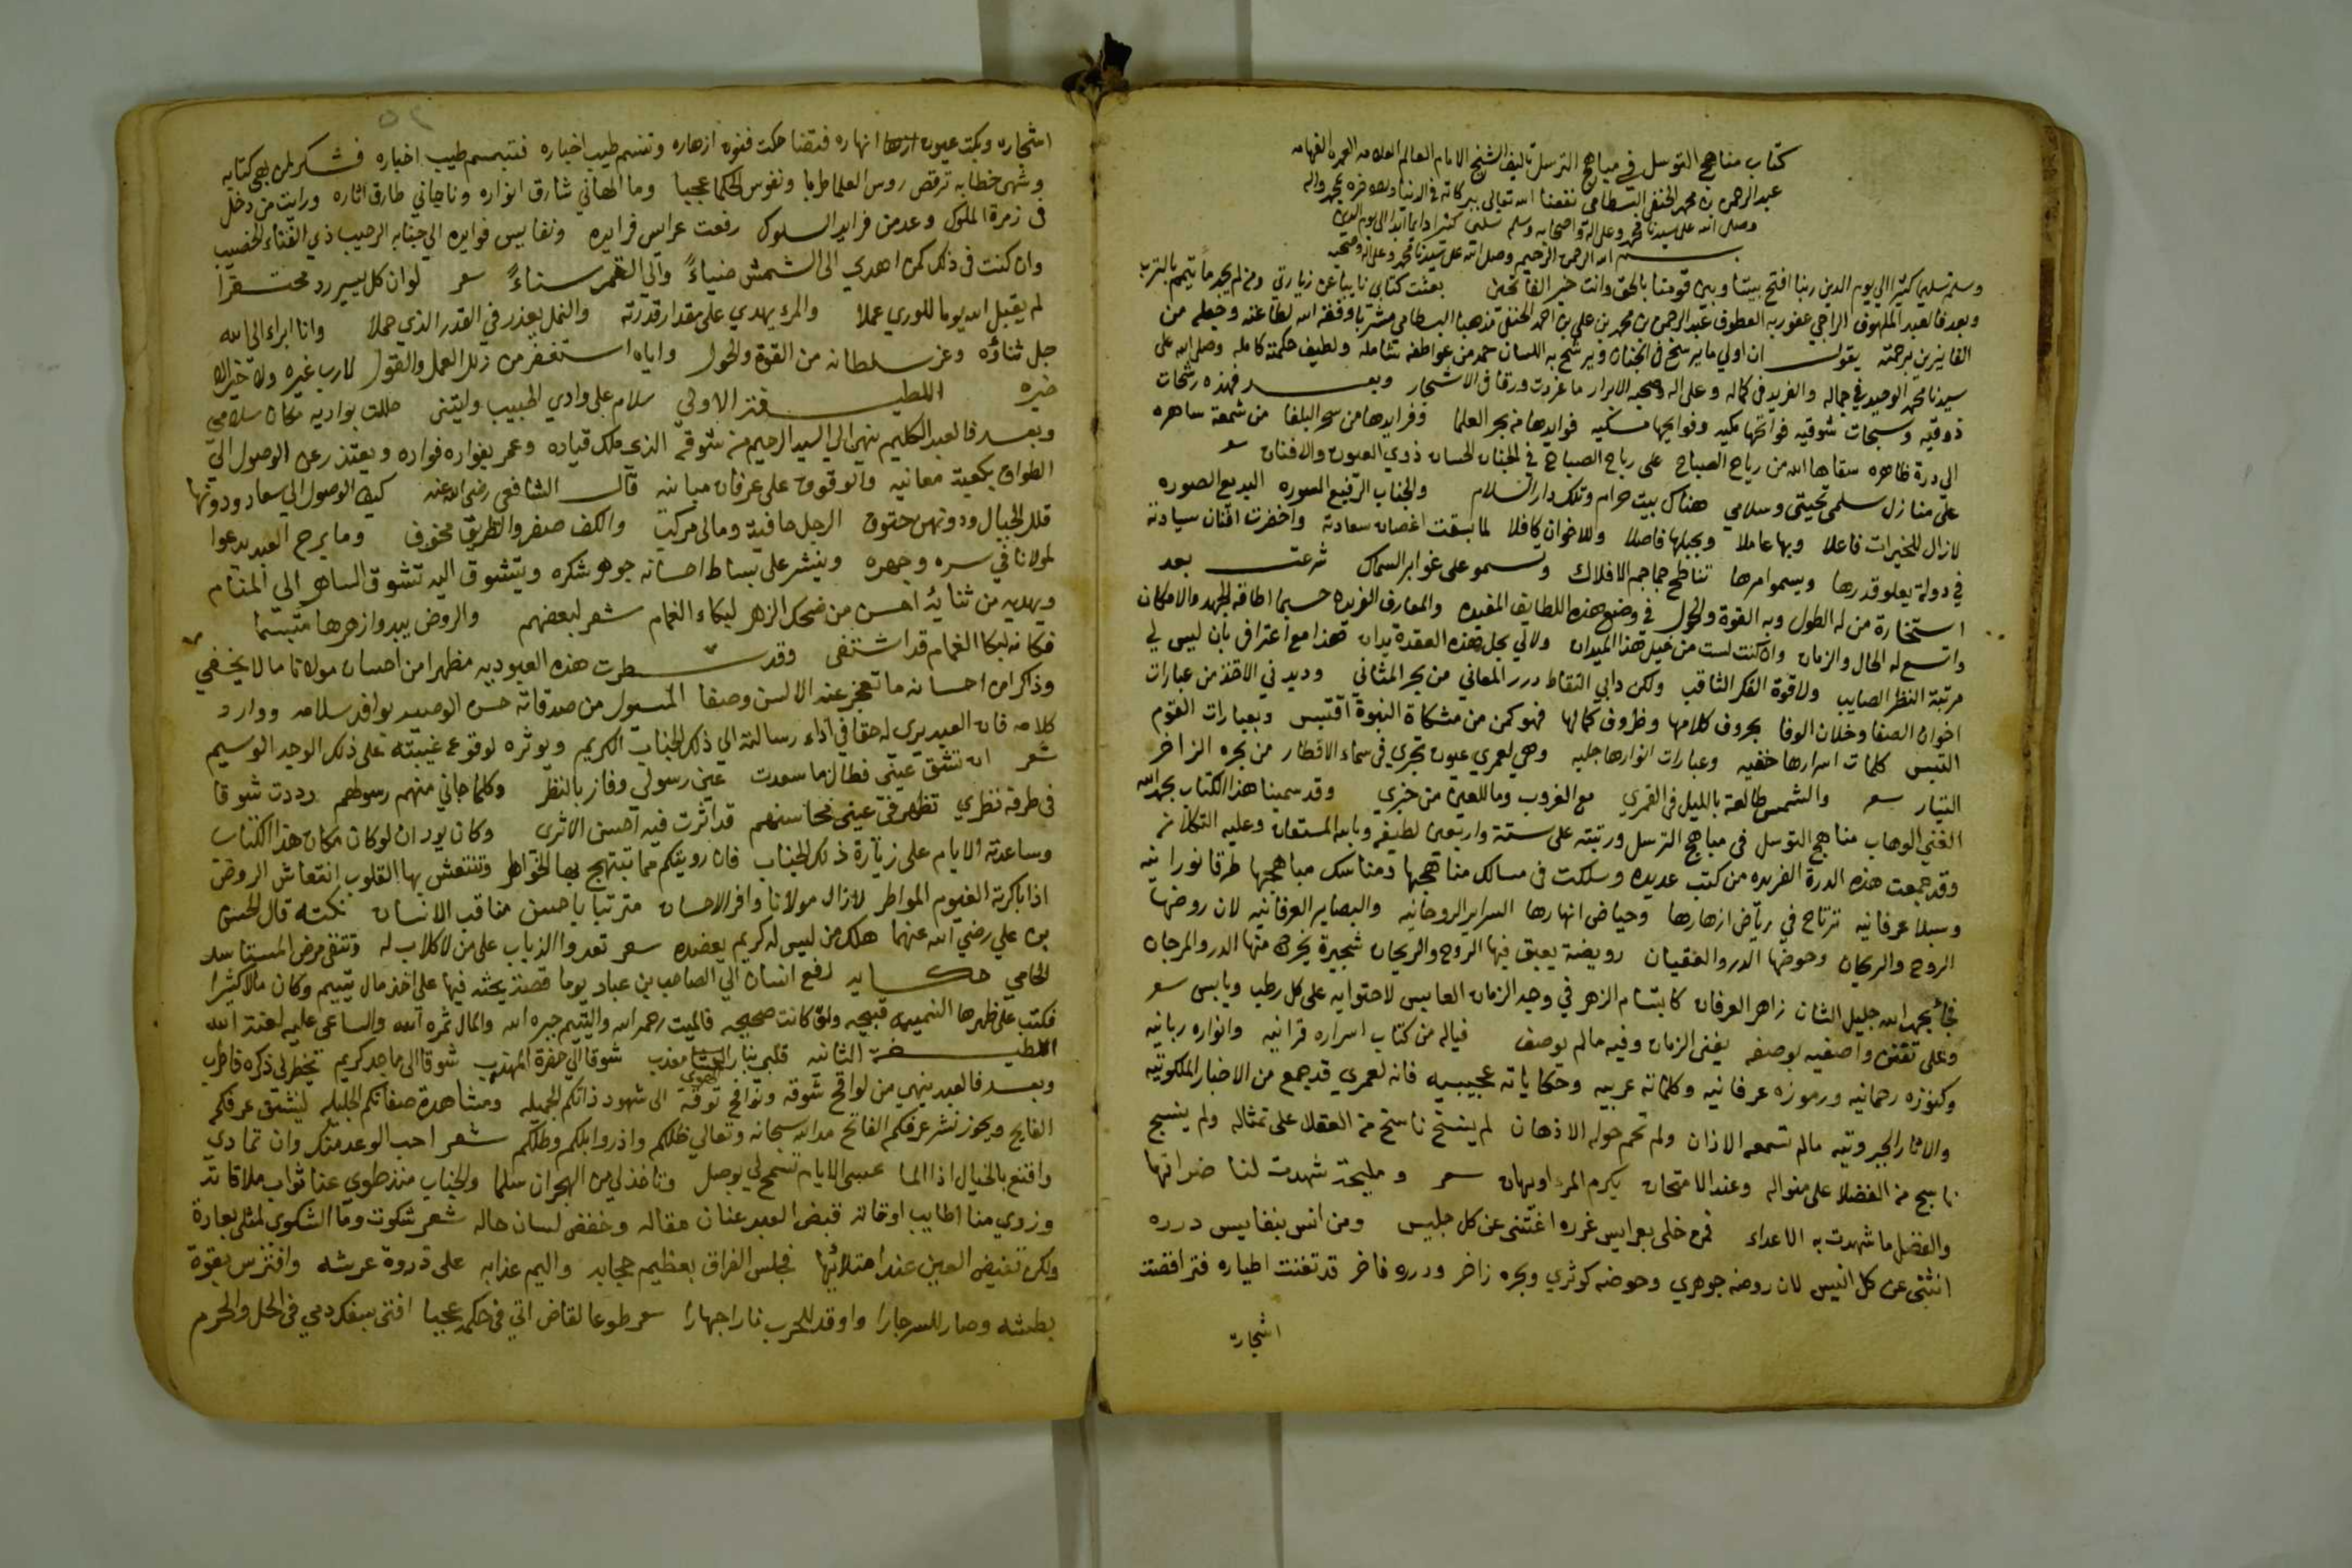 كتاب مناهج التوسل في مباهج الترسل تاليف الشيخ الامام العالم العلامه العمده الفهامه
عبد الرحمن بن محمد الحنفي البسطامي نفعنا الله تعالى ببركاته في الدنيا والاخره بمحمد واله
وصلى الله على سيدنا محمد وعلى اله واصحابه وسلم تسليما كثيرا دايما ابدا الى يوم الدين
بسم الله الرحمن الرحيم وصلى الله على سيدنا محمد وعلى اله وصحبه
وسلم تسليما كثيرا الي يوم الدين ربنا افتح بيننا وبين قومنا بالحق وانت خير الفاتحين بعثت كتابي نايبا عن زيارتي ومن لم يجد ماً يتيمم بالترب
وبعد فالعبد الملهوف الراجي عفو ربه العطوف عبد الرحمن بن محمد بن علي بن احمد الحنفي مذهبا البسطامي مشربا وفقه الله لطاعته وجعله من
الفايزين برحمته يقول ان اولي ما يرسخ في الجنان ويرشح به اللسان حمد من عواطفه شامله ولطيف حكمته كامله وصلى الله على
سيدنا محمد الوحيد في جماله والفريد في كماله وعلى اله وصحبه الابرار ما غردت ورقا في الاشجار وبعد فهذه رشحات
ذوقيه وسبحات شوقيه فواتحها مكيه وفوايحها مسكيه فوايدها من بحر العلما وفرايدها من سحر البلغا من شمعة ساهره
الي درة ظاهره سقاها الله من رياح الصباح على رباح الصباح في الجنان الحسان ذوي العيون والافنان سعر
على منازل سلمى تحيتي وسلامي هناك بيت حرام وتلك دار السلام والجناب الرفيع السوره البديع الصوره
لازال للخيرات فاعلا وبها عاملا وبجبلها فاصلا وللاخوان كافلا لما بسقت اغصان سعادته واخضرت افنان سيادته
في دولة يعلو قدرها ويسموا مرها تناطح جماجم الافلاك وتسمو على غوابر السماك شرعت بعد
استخارة من له الطول وبه القوة والحول في وضع هذه اللطايف المفيده والمعارف الفريده حسبما اطاقه الجهد والامكان
واتسع له الحال والزمان وان كنت لست من خيل هذا الميدان ولا لي بحل هذه العقدة يدان هذا مع اعتراف بان ليس لي
مرتبة النظر الصايب ولا قوة الفكر الثاقب ولكن دابي التقاط درر المعاني من بحر المثاني وديدني الاخذ من عبارات
اخوان الصفا وخلان الوفا بحروف كلامها وظروف كمالها فهو كمن من مشكاة النبوة اقتبس وبعبارات القوم
التبس كلمات اسرارها خفيه وعبارات انوارها جليه وهي لعمري عيون تجري في سماء الاقطار من بحره الزاخر
التيار سعر والشمس طالعة بالليل في القمري مع الغروب وما للعين من خبري وقد سمينا هذا الكتاب بحمد الله
الغني الوهاب مناهج التوسل في مباهج الترسل ورتبته على ستة واربعين لطيفه وبالله المستعان وعليه التكلان
وقد جمعت هذه الدرة الفريده من كتب عديده وسلكت في مسالك مناهجها ومناسك مباهجها طرقا نورانيه
وسبلا عرفانيه ترتاح في رياض ازهارها وحياض انهارها السراير الروحانيه والبصاير العرفانيه لان روضها
الروح والريحان وحوضها الدر والعقيان رويضة يعبق فيها الروح والريحان شجيرة يخرج منها الدر والمرجان
فجأ بحمد الله جليل الشان زاهر العرفان كابتسام الزهر في وجه الزمان العابس لاحتوايه على كل رطب ويابس سعر
وعلى تفنن واصفيه بوصفه يفنى الزمان وفيه مالم يوصف فياله من كتاب اسراره قرانيه وانواره ربانيه
وكنوزه رحمانيه ورموزه عرفانيه وكلماته عربيه وحكاياته عجيبيه فانه لعمري قد جمع من الاخبار الملكوتيه
والاثار الجبروتيه مالم تسمعه الاذان ولم تحم حوله الاذهان لم ينسخ ناسخ من العقلا على تمثاله ولم ينسج
ناسج من الفضلا على منواله وعند الامتحان يكرم المرء او يهان سعر ومليحة شهدت لنا ضراتها
والفضل ما شهدت به الاعداء فمن خلى بعرايس غرره اغتنى عن كل جليس ومن انس بنفايس درره
انثنى عن كل انيس لان روضه جوهري وحوضه كوثري وبحره زاخر ودره فاخر قد تغنت اطياره فتراقصت
اشجاره
اشجاره وبكت عيون انهاره فضحكت فنون ازهاره وتنسم طيب اخباره فتبسم طيب اخباره فشكر لمن بهي كتابه
وشهي خطابه ترقص روس العلما طربا ونفوس الحكما عجبا وما الهاني شارق انواره وناجاني طارق اثاره ورايت من دخل
في زمرة الملوك وعد من فرايد السلوك رفعت عرايس فرايده ونفايس فوايده الي جنابه الرحيب ذي الفناء الخصيب
وان كنت في ذلك كمن اهدي الى الشمس ضياءً والي القمر سناءً سعر لو ان كل يسير رد محتقرا
لم يقبل الله يوما للوري عملا والمرء يهدي على مقدار قدرته والنمل يعذر في القدر الذي حملا وانا ابراء الى الله
جل ثناؤه وعز سلطانه من القوة والحول واياه استغفر من زلل العمل والقول لا رب غيره ولا خير الا
خيره اللطيفة الاولي سلام على وادي الحبيب وليتني حللت بواديه مكان سلامي
وبعد فالعبد الكليم ينهي الي السيد الرحيم من شوقه الذي ملك قياده وعمر بفواره فواده ويعتذر عن الوصول الي
الطواف بكعبة معانيه والوقوف على عرفات مبانيه قال الشافعي رضي الله عنه كيف الوصول الي سعاد ودونها
قلل الجبال ودونهن حتوف الرجل حافية ومالي مركب والكف صفر والطريق مخوف وما برح العبد يدعوا
لمولانا في سره وجهره وينشر على بساط احسانه جوهر شكره ويتشوق اليه تشوق الساهر الي المنام
ويهديه من ثنايه احسن من ضحك الزهر لبكاء الغمام شعر لبعضهم والروض يبدو ازهرها متبسما
فكانه لبكا الغمام قد اشتفى وقد سطرت هذه العبوديه مظهرا من احسان مولانا ما لا يخفي
وذاكرا من احسانه ما تعجز عنه الالسن وصفا المسول من صدقاته حسن الوصيه بوافد سلامه ووارد
كلامه فان العبد يرى له حقا في اداء رسالته الي ذلك الجناب الكريم ويوثره لوقوع غيبته على ذلك الوجه الوسيم
شعر ان تشق عيني فطال ما سعدت عين رسولي وفاز بالنظر وكلما جاني منهم رسولهم رددت شوقا
في طرفه نظري تظهر في عينه محاسنهم قد اثرت فيه احسن الاثري وكان يود ان لو كان مكان هذا الكتاب
وساعدته الايام على زيارة ذلك الجناب فان رويتكم مما تبتهج بها الخواطر وتنتعش بها القلوب انتعاش الروض
اذا باكرته الغيوم المواطر لازال مولانا وافر الاحسان مترتبا باحسن مناقب الانسان نكته قال الحسن
بن علي رضي الله عنهما هلك من ليس له كريم يعضده سعر تعدوا الذياب على من لا كلاب له وتتقى مربض المستاسد
الحامي حكايه رفع انسان الي الصاحب بن عباد يوما قصة يحثه فيها على اخذ مال يتيم وكان مالا كثيرا
فكتب على ظهرها النميمه قبيحه ولو كانت صحيحه فالميت رحمه الله واليتيم جبره الله والمال ثمره الله والساعى عليه لعنة الله
اللطيفة الثانيه قلبي بنار الهوى معذب شوقا الي حضرة المهذب شوقا الى ماجد كريم يخطر لي ذكره فاطرب
وبعد فالعبد ينهي من لواقح شوقه ونوافح توقه الى شهود ذاتكم الجميله ومشاهدة صفاتكم الجليله ليشنق عرفكم
الفايح ويحوز نشر عرفكم الفاتح مد الله سبحانه وتعالي ظلكم واذر وابلكم وطلكم شعر احب الوعد منك وان تمادي
واقنع بالخيال اذا الما عسى الايام تسمح لي بوصل وتاخذ لي من الهجران سلما والجناب منذ طوي عنا ثواب ملاقاته
وزوي منا اطايب اوقاته قبض العبد عنان مقاله وخفض لسان حاله شعر شكوت وما الشكوي لمثلي بعادة
ولكن تفيض العين عند امتلائها فجلس الفراق بعظيم حجابه واليم عذابه على ذروة عرشه وافترس بقوة
بطشه وصار للسر جارا واوقد للحرب نارا جهارا سعر طوعا لقاض اتي في حكمه عجبا افتى بسفك دمي في الحل والحرم